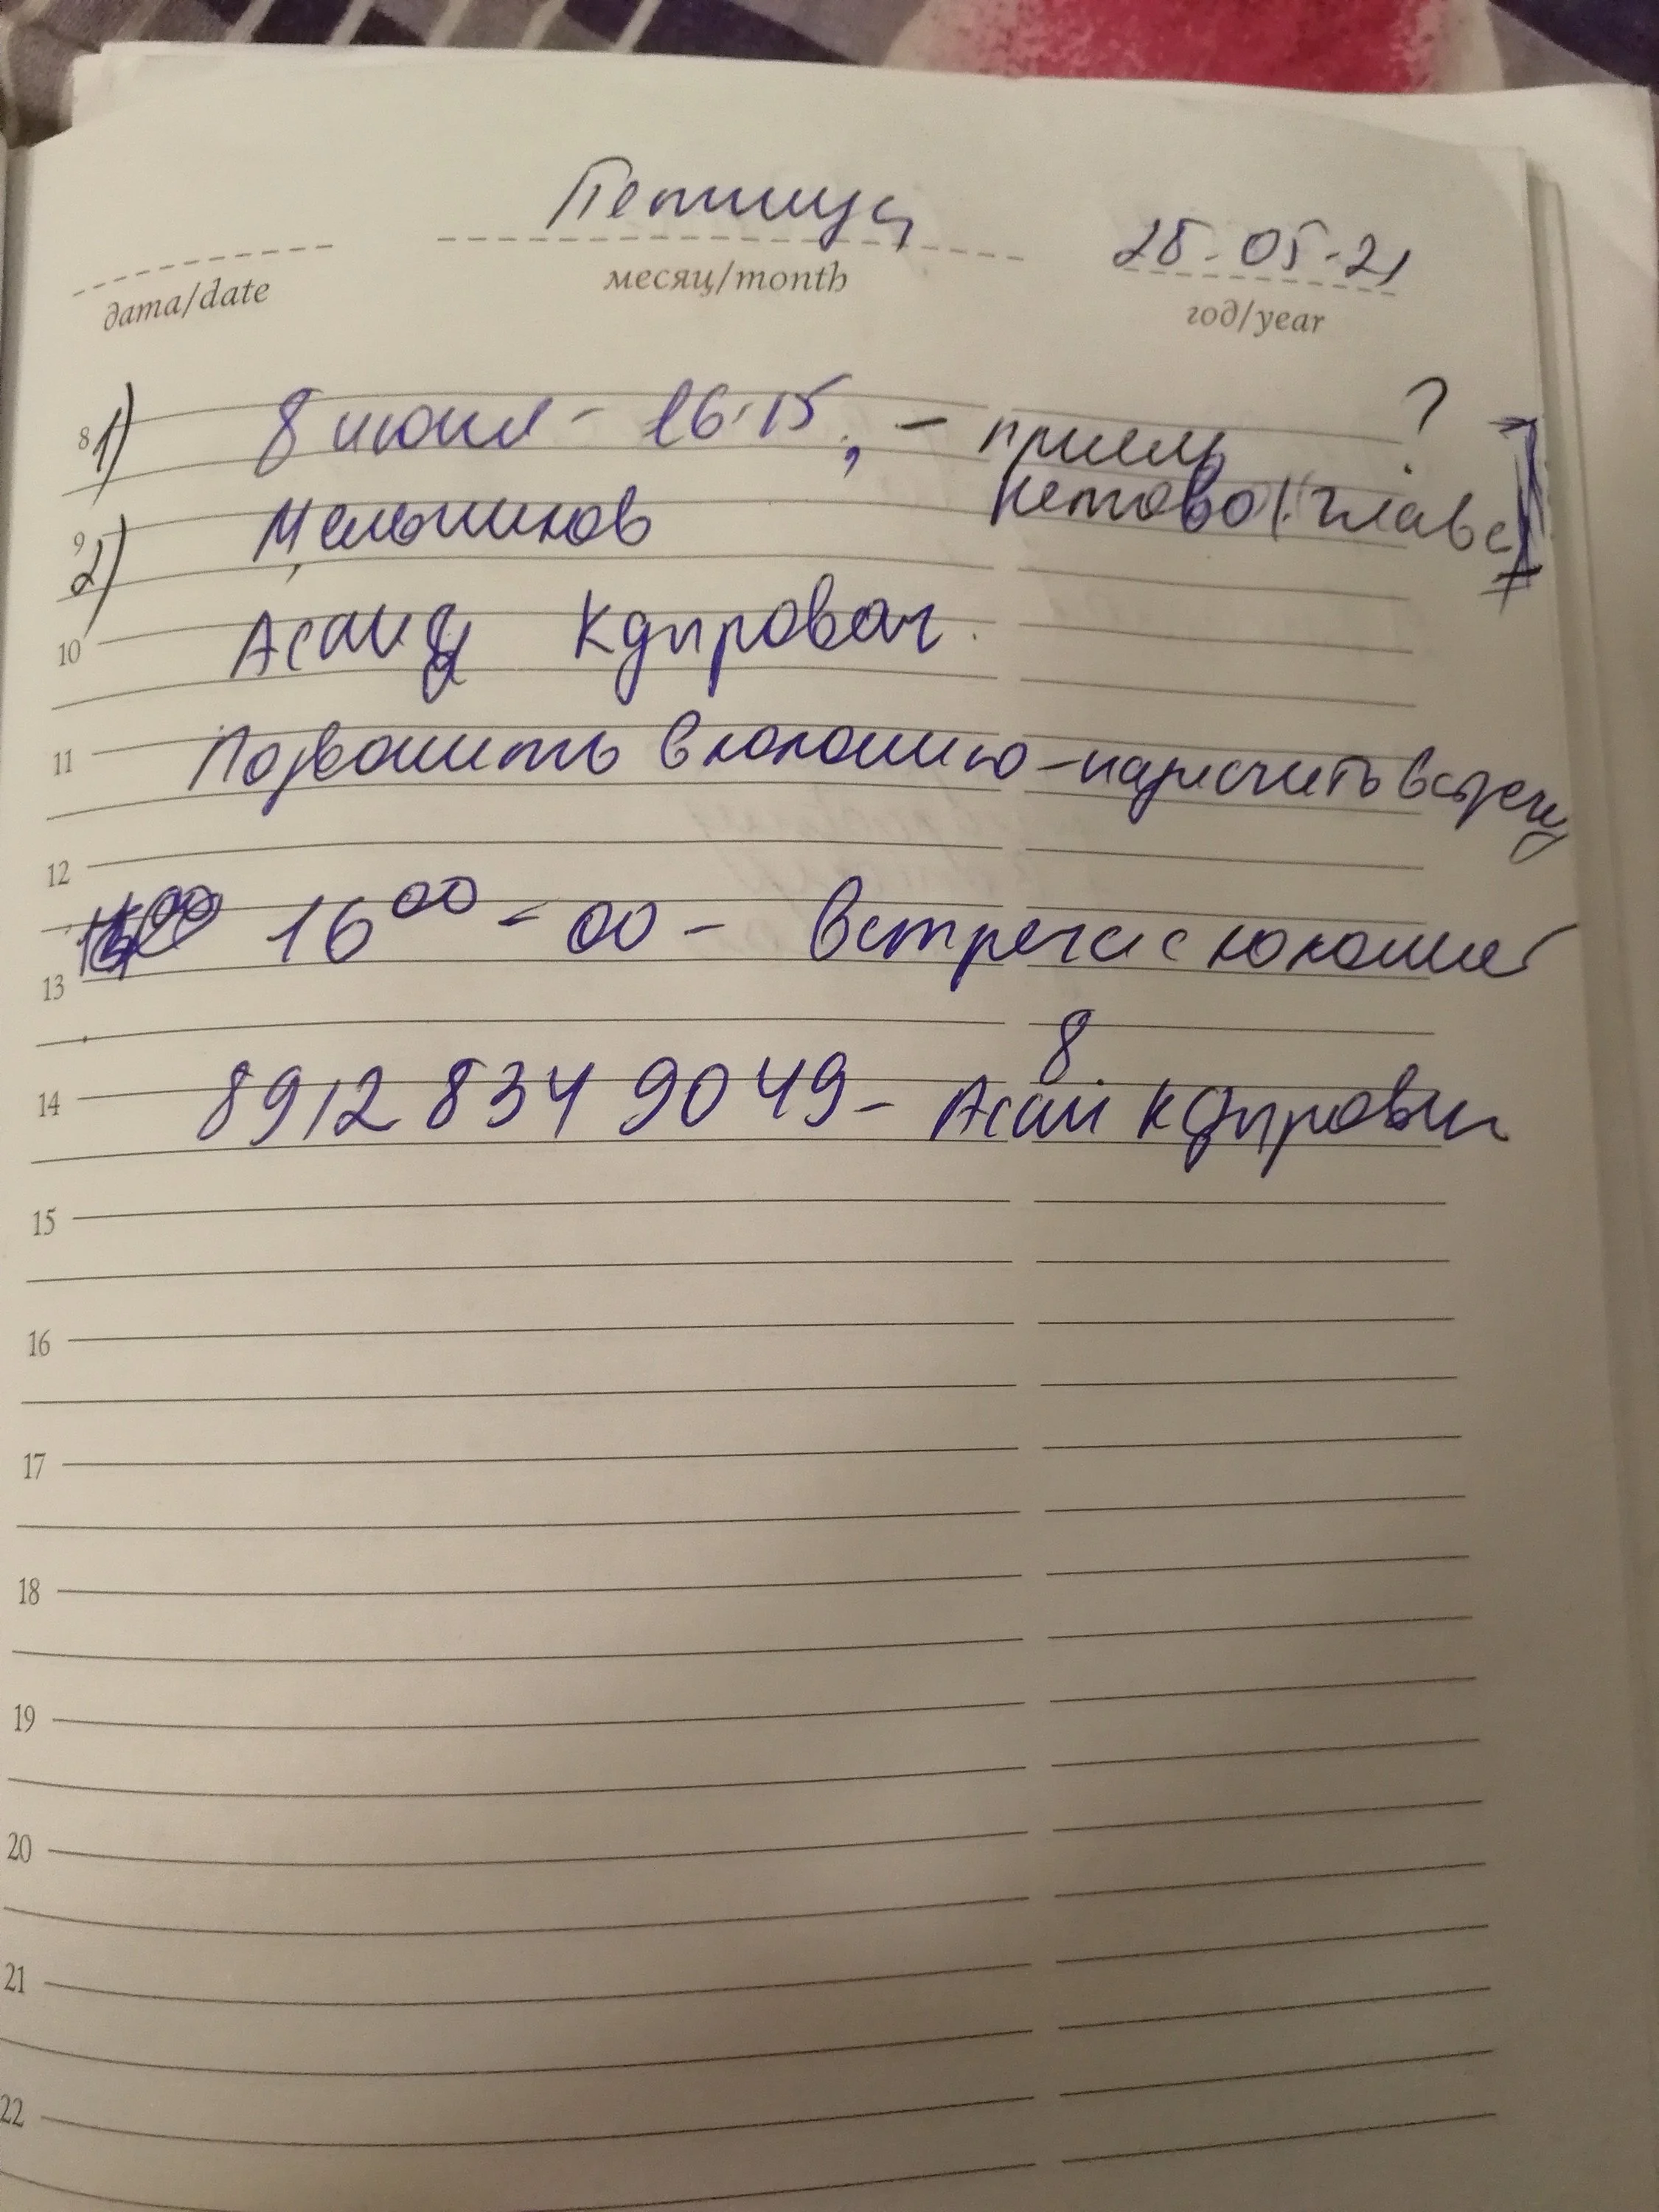 Петница
28.05.21
дата/date
месяц/month
год/year
8 1) 8 июня - 16.15, - прием ?
Кетово (главе)
9 2) Мельников
10 Асаид Кдырович.
11 Позвонить в колонию - назначить встречу
12
16 00 - 00 - встреча с колонией
13
8
14 8912 834 9049 - Асаи Кдырович
15
16
17
18
19
20
21
22